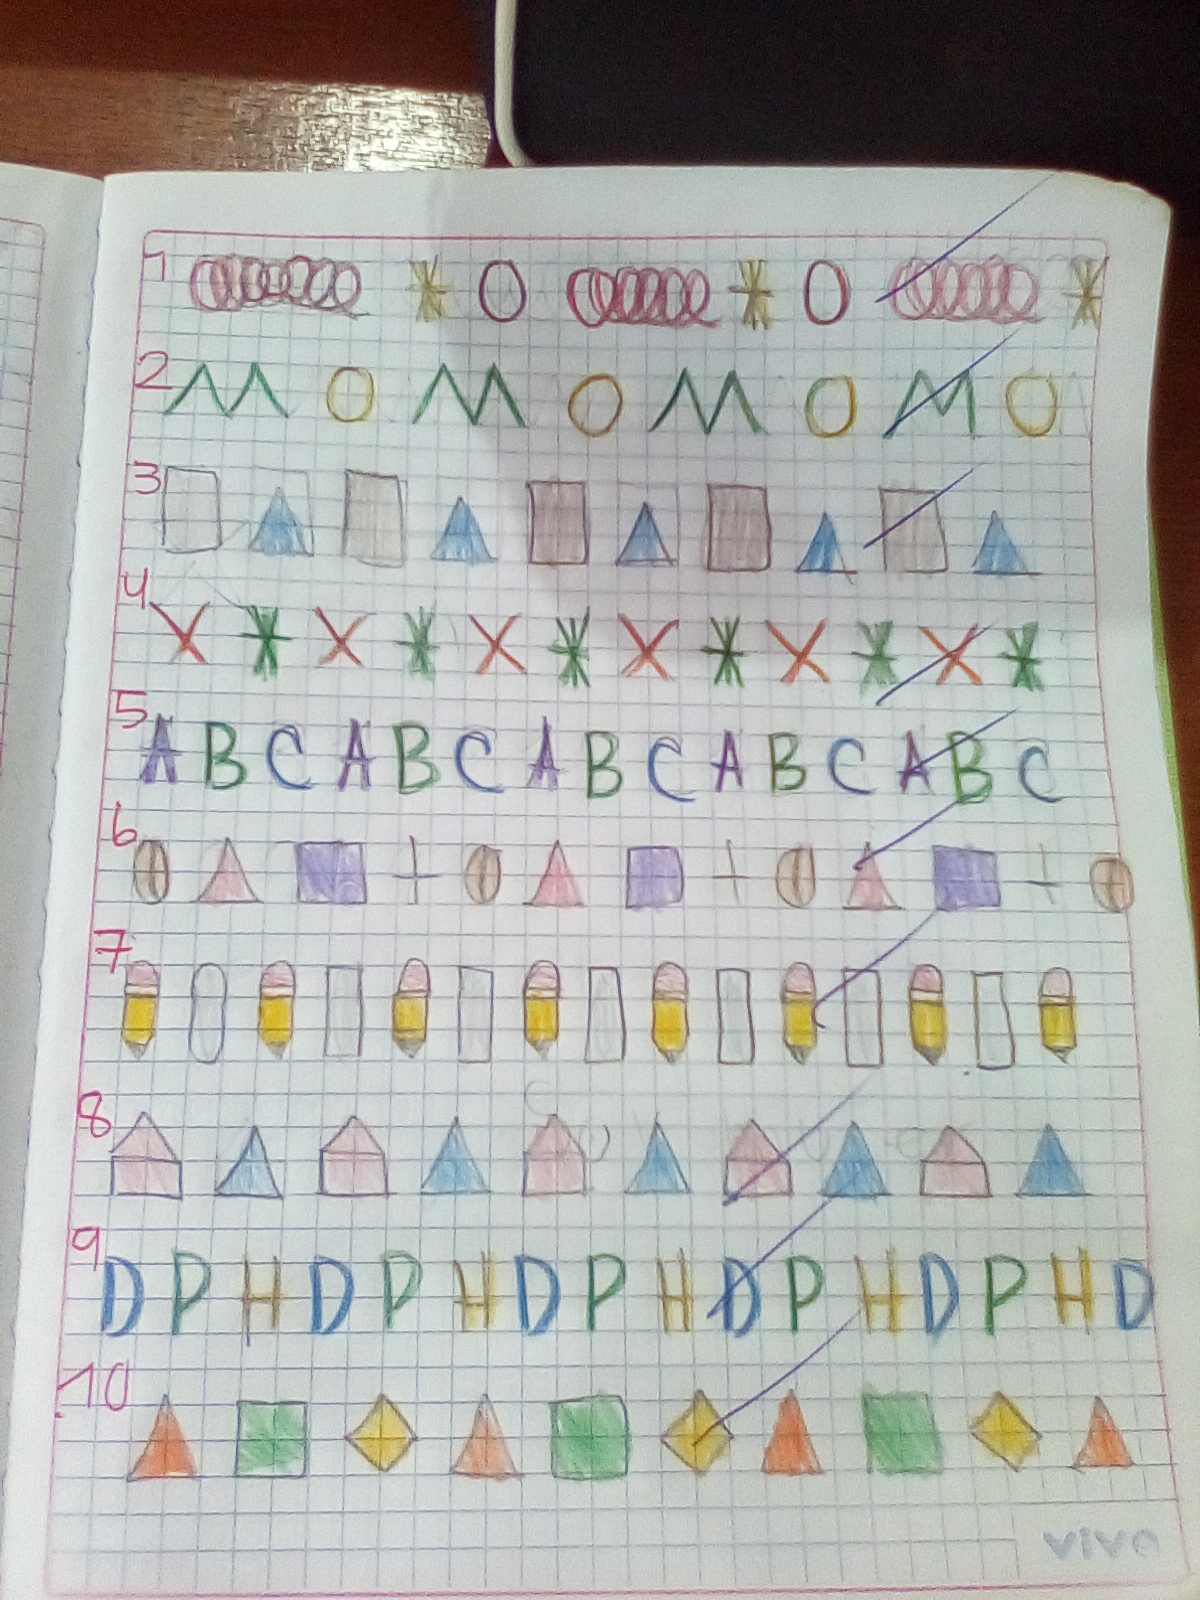 1
2
3
4
5
A B C A B C A B C A B C A B C
6
7
8
9
D P H D P H D P H D P H D P H D
10
vivo